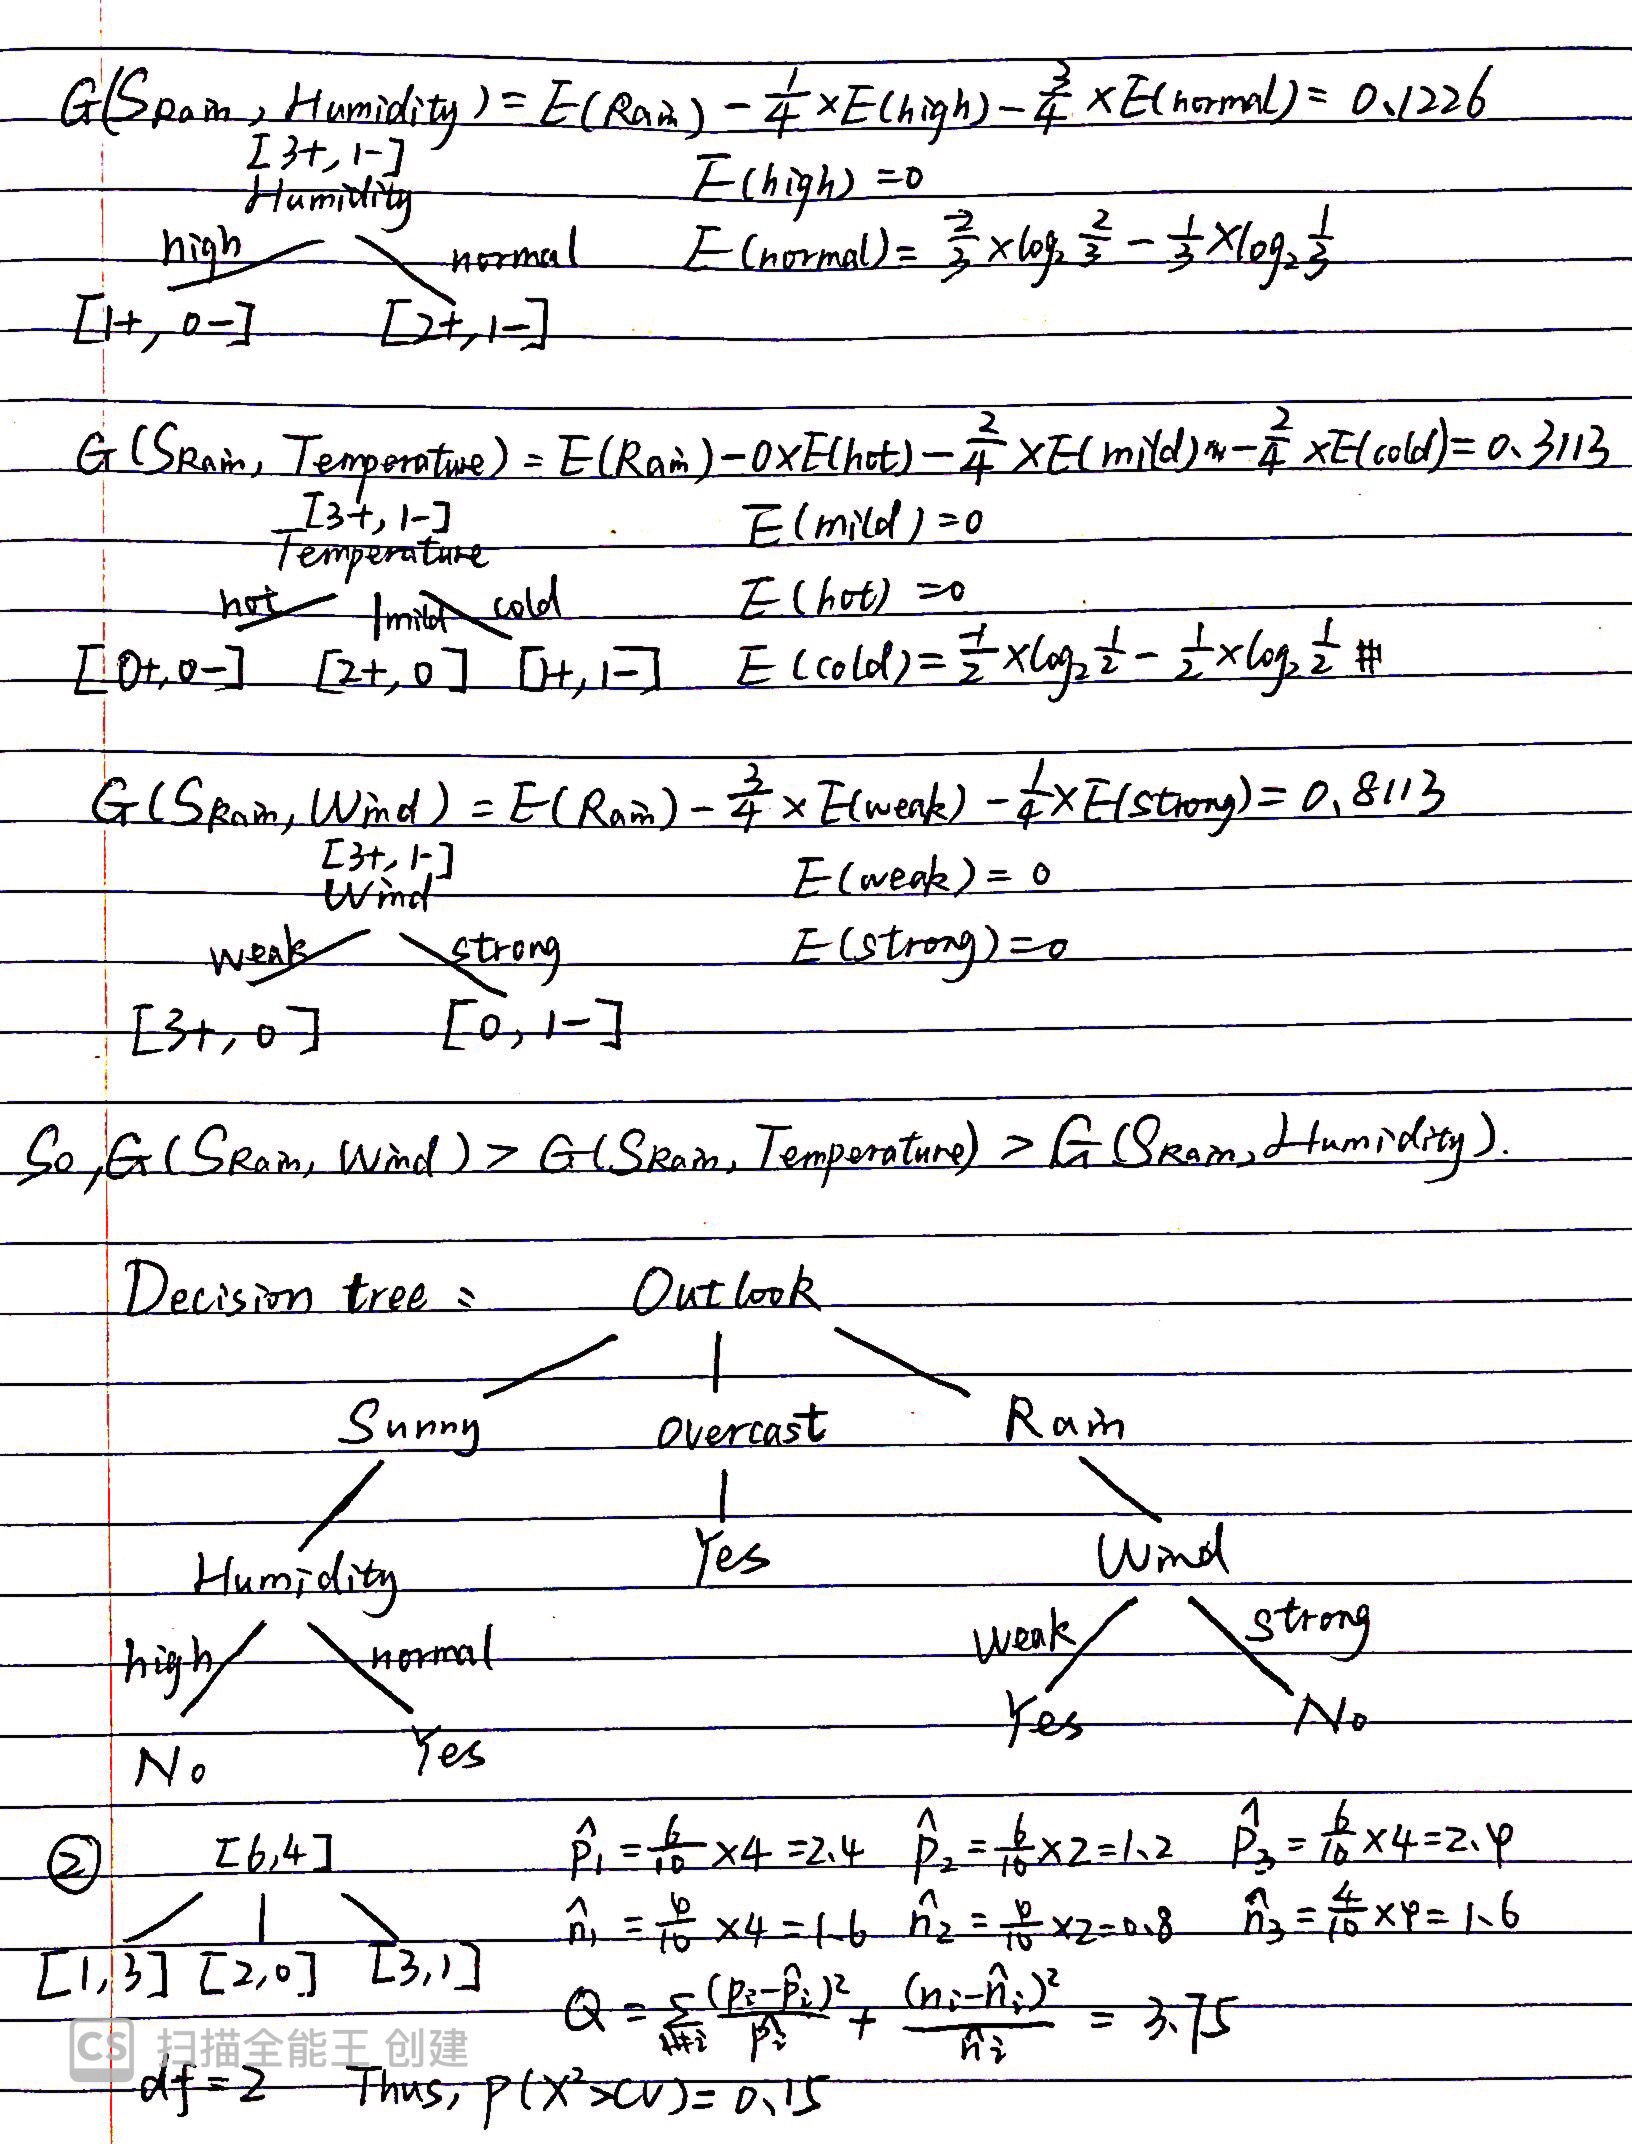 G(SRain, Humidity) = E(Rain) - 1/4 × E(high) - 3/4 × E(normal) = 0.1226
[3+, 1-]
E(high) = 0
Humidity
high normal
E(normal) = -2/3 × log₂ 2/3 - 1/3 × log₂ 1/3
[1+, 0-] [2+, 1-]
G(SRain, Temperature) = E(Rain) - 0×E(hot) - 2/4 × E(mild) - 2/4 × E(cold) = 0.3113
[3+, 1-]
E(mild) = 0
Temperature
hot mild cold
E(hot) = 0
[0+, 0-] [2+, 0] [1+, 1-]
E(cold) = -1/2 × log₂ 1/2 - 1/2 × log₂ 1/2 #
G(SRain, Wind) = E(Rain) - 3/4 × E(weak) - 1/4 × E(strong) = 0.8113
[3+, 1-]
E(weak) = 0
Wind
weak strong
E(strong) = 0
[3+, 0] [0, 1-]
So, G(SRain, Wind) > G(SRain, Temperature) > G(SRain, Humidity).
Decision tree: Outlook
Sunny overcast Rain
Humidity Yes Wind
high normal weak strong
No Yes Yes No
② [6,4]
p̂₁ = 6/10 × 4 = 2.4 p̂₂ = 6/10 × 2 = 1.2 p̂₃ = 6/10 × 4 = 2.4
n̂₁ = 4/10 × 4 = 1.6 n̂₂ = 4/10 × 2 = 0.8 n̂₃ = 4/10 × 4 = 1.6
[1,3] [2,0] [3,1]
Q = Σ (pᵢ - p̂ᵢ)²/p̂ᵢ + (nᵢ - n̂ᵢ)²/n̂ᵢ = 3.75
CS 扫描全能王 创建
df = 2 Thus, p(X² > CV) = 0.15